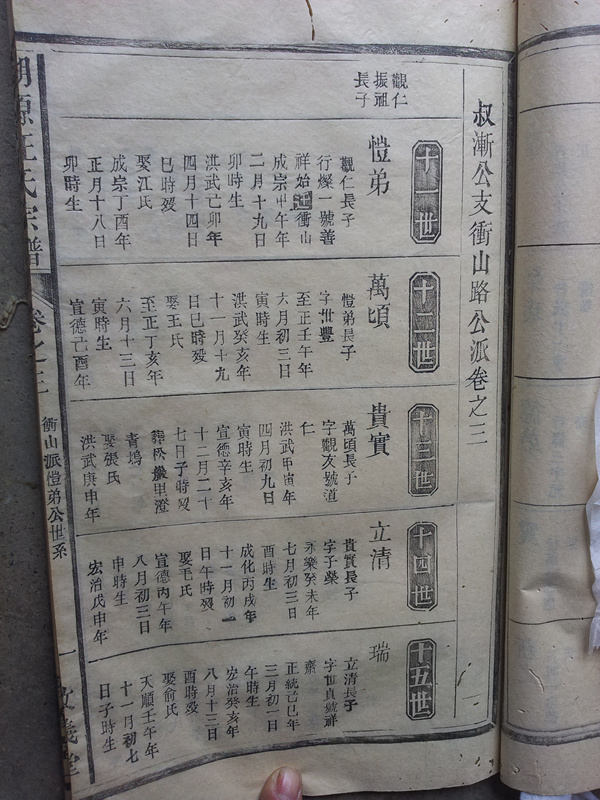 叔漸公支衝山路公派卷之三
觀仁
振祖
長子
十一世
愷弟
觀仁長子
行燦一號善
祥始遷衝山
成宗甲午年
二月十九日
卯時生
洪武亡卯年
四月十四日
巳時殁
娶江氏
成宗丁酉年
正月十八日
卯時生
十二世
萬頃
愷弟長子
字世豐
至正壬午年
六月初三日
寅時生
洪武癸亥年
十一月十九
日巳時殁
娶王氏
至正丁亥年
六月十三日
寅時生
宣德己酉年
十三世
貴實
萬頃長子
字觀友號道
仁
洪武甲寅年
四月初九日
寅時生
宣德辛亥年
十二月二十
七日子時殁
葬松巖里澄
青塢
娶張氏
洪武庚申年
十四世
立清
貴實長子
字子榮
永樂癸未年
七月初三日
酉時生
成化丙戌年
十一月初二
日午時殁
娶毛氏
宣德丙午年
八月初三日
申時生
宏治戊申年
十五世
瑞
立清長子
字世貞號祥
齋
正統己巳年
三月初一日
午時生
宏治癸亥年
八月十三日
酉時殁
娶俞氏
天順壬午年
十一月初七
日子時生
汪氏宗譜
卷之三
衝山派愷弟公世系
一